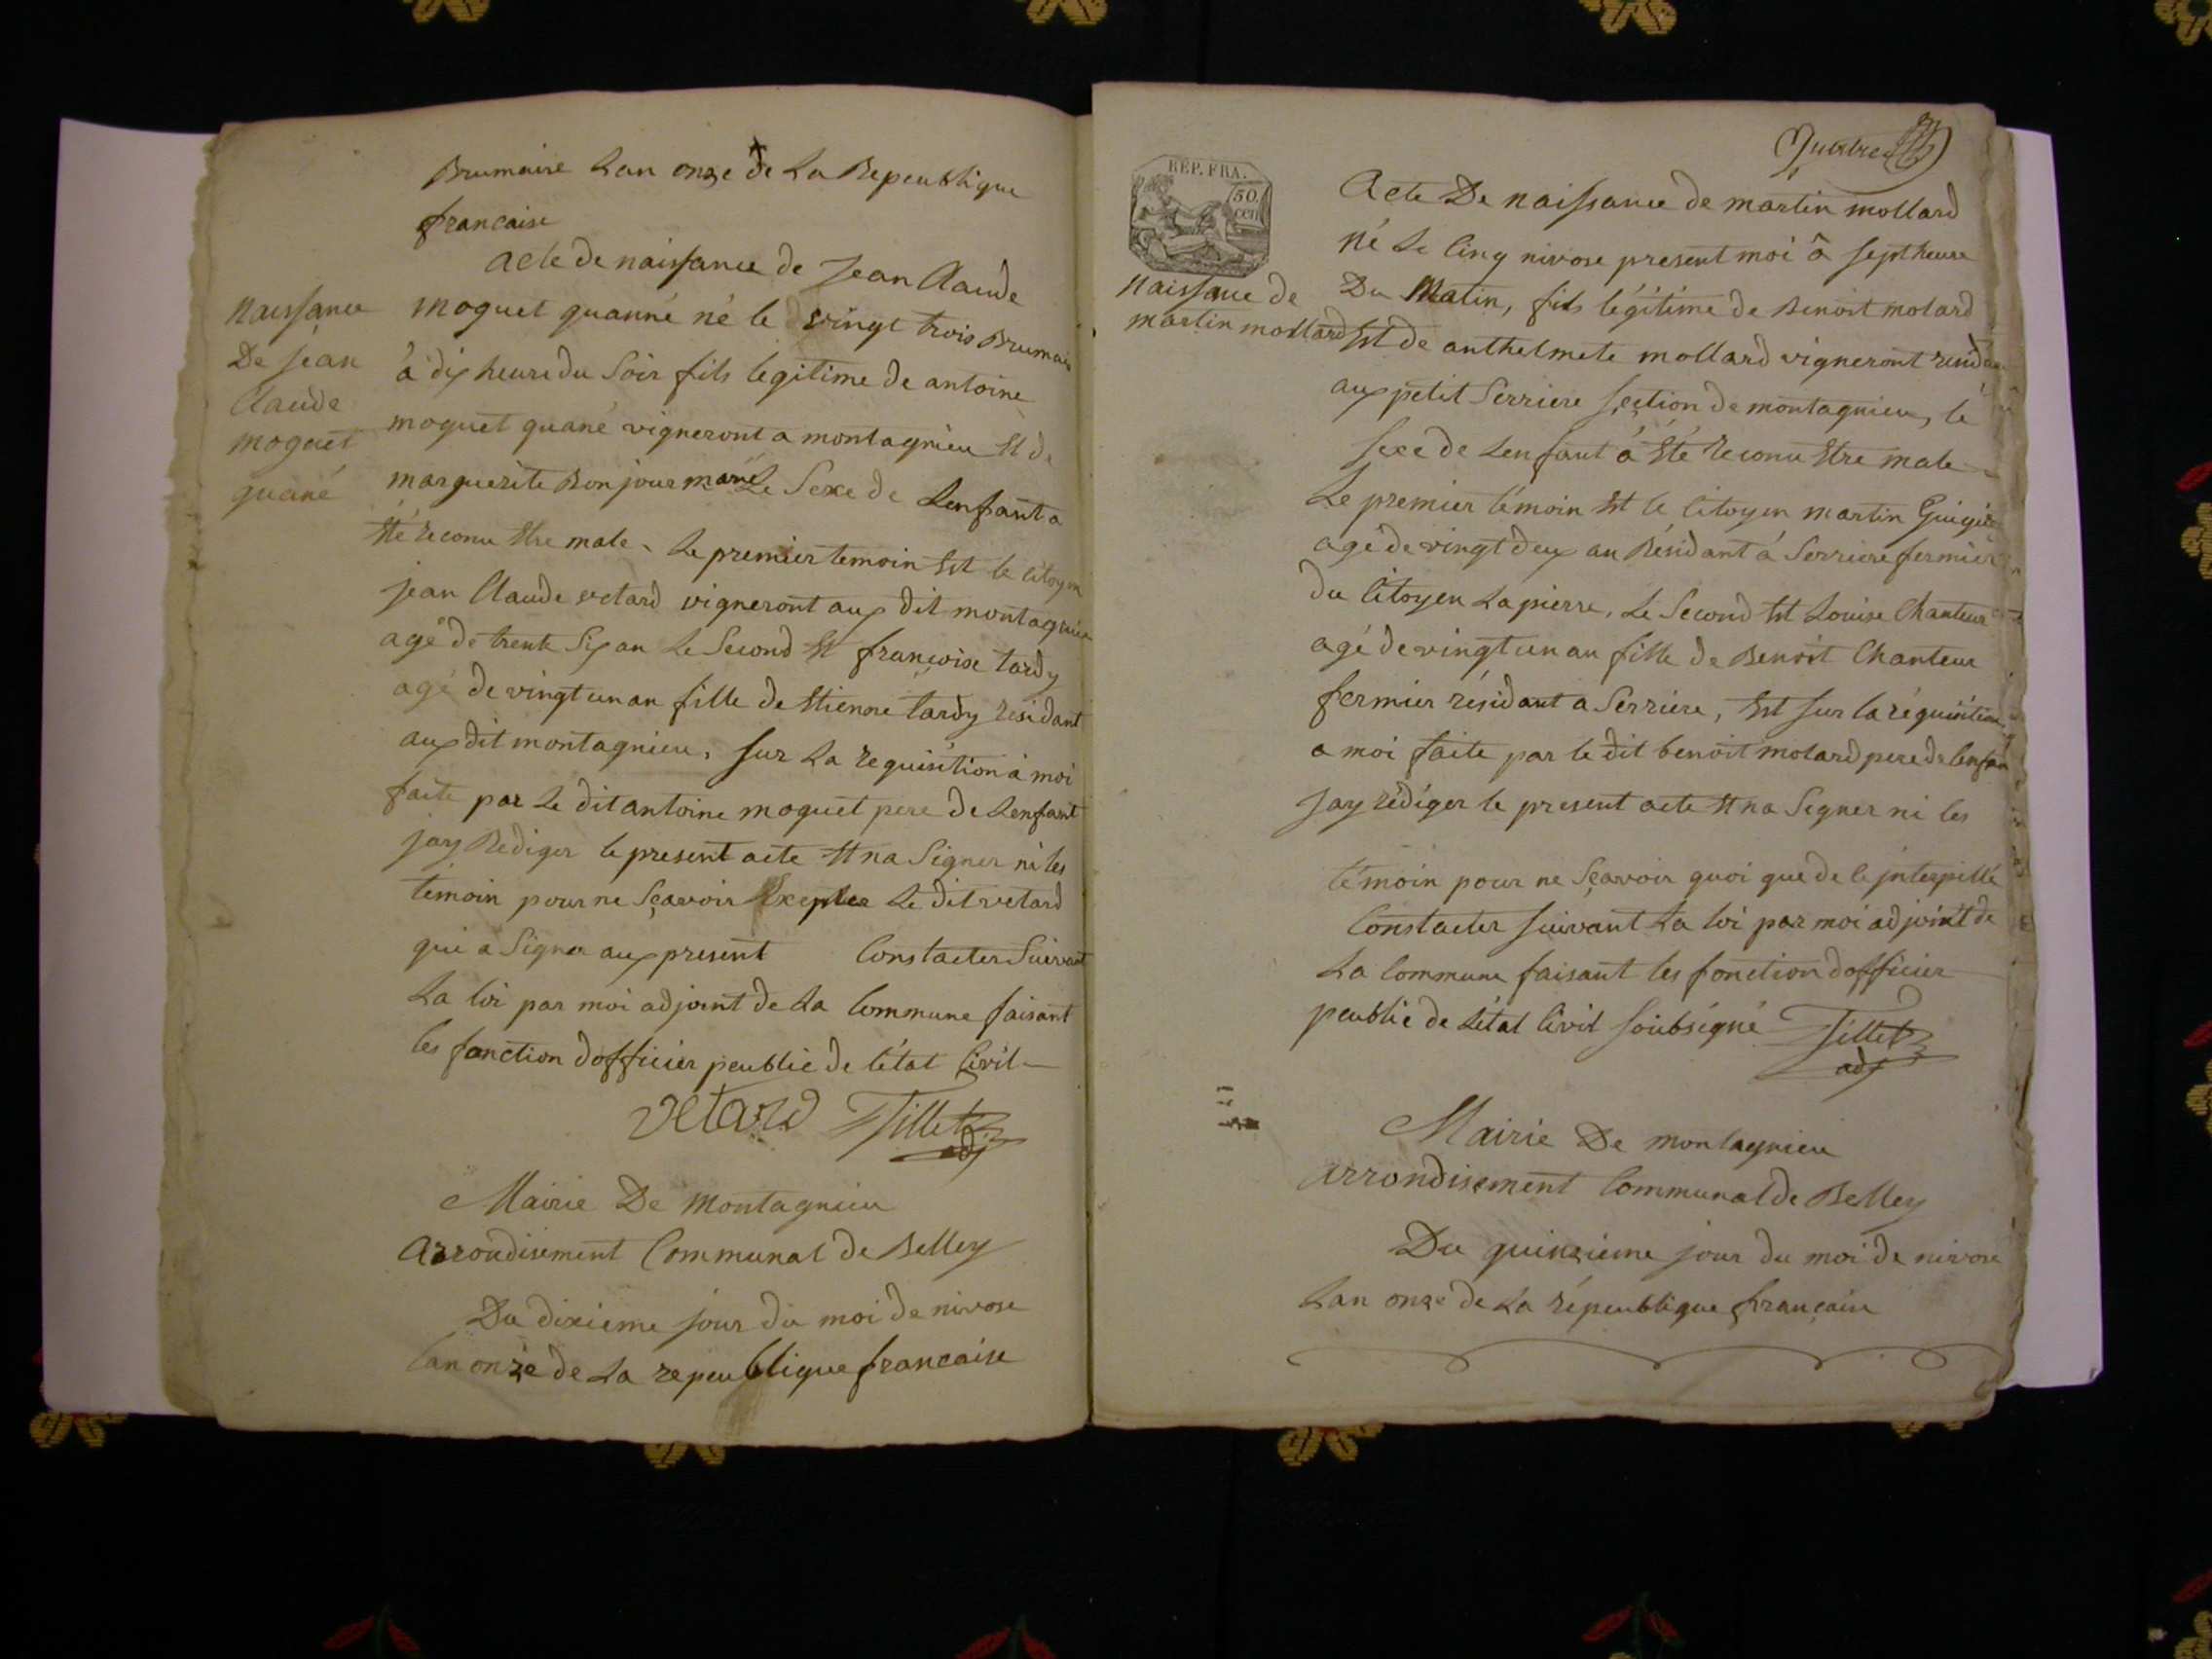 Brumaire Lan onze de La Repeublique
francaise
acte de naissance de Jean Claude
moquet quanné né le vingt trois Brumair
à dix heure du Soir fils legitime de antoine
moquet quané vigneront a montagnieu Et de
marguerite Bonjour marié Le Sexe de Lenfant a
Eté reconu Etre male, Le premier temoin Est le citoyen
jean Claude vetard vigneront aux dit montagnieu
agé de trente Six an Le Second Et françoise tardy
agé de vingt un an fille de Etienne tardy residant
aux dit montagnieu, Sur La requisition à moi
faite par Le dit antoine moquet pere de Lenfant
jay Rediger le present acte Et na Signer ni les
temoin pour ne Sçavoir Exepter Le dit vetard
qui a Signer aux present Constacter Suivant
La loi par moi adjoint de La Commune faisant
les fonction dofficier peublic de létat Civil
vetard Tillet
adj
Naissance
De jean
Claude
moquet
quané
Mairie De Montagnieu
Arrondisement Communal de Belley
Du dixieme jour du moi de nivose
Lan onze de La repeublique francaise
REP. FRA.
50.
cen
Naissance de
martin mollard
Acte De naissance de martin mollard
né Le Cinq nivose present moi à Sept heure
Du Matin, fils légitime de Benoit molard
Et de anthelmete mollard vigneront
aux petit Serriere Section de montagnieu, le
Sexe de Lenfant à Eté reconu Etre male
Le premier témoin Et le Citoyen martin
agé de vingt deux an Résidant à Serriere fermier
du Citoyen Lapierre, Le Second Est Louise Chanteur
agé de vingt un an fille de Benoit Chanteur
fermier résidant a Serriere, Est Sur la réquisition
a moi faite par le dit benoit molard pere de lenfan
Jay rédiger le present acte Et na Segner ni les
témoin pour ne Sçavoir quoi que de le jnterpillé
Constacter Suivant La loi par moi adjoint de
La Commune faisant les fonction dofficier
peublic de Létat Civil Soubsigné Tillet
adj
Mairie De montagnieu
arrondisement Communal de Belley
Du quinzieme jour du moi de nivose
Lan onze de La répeublique françaiu